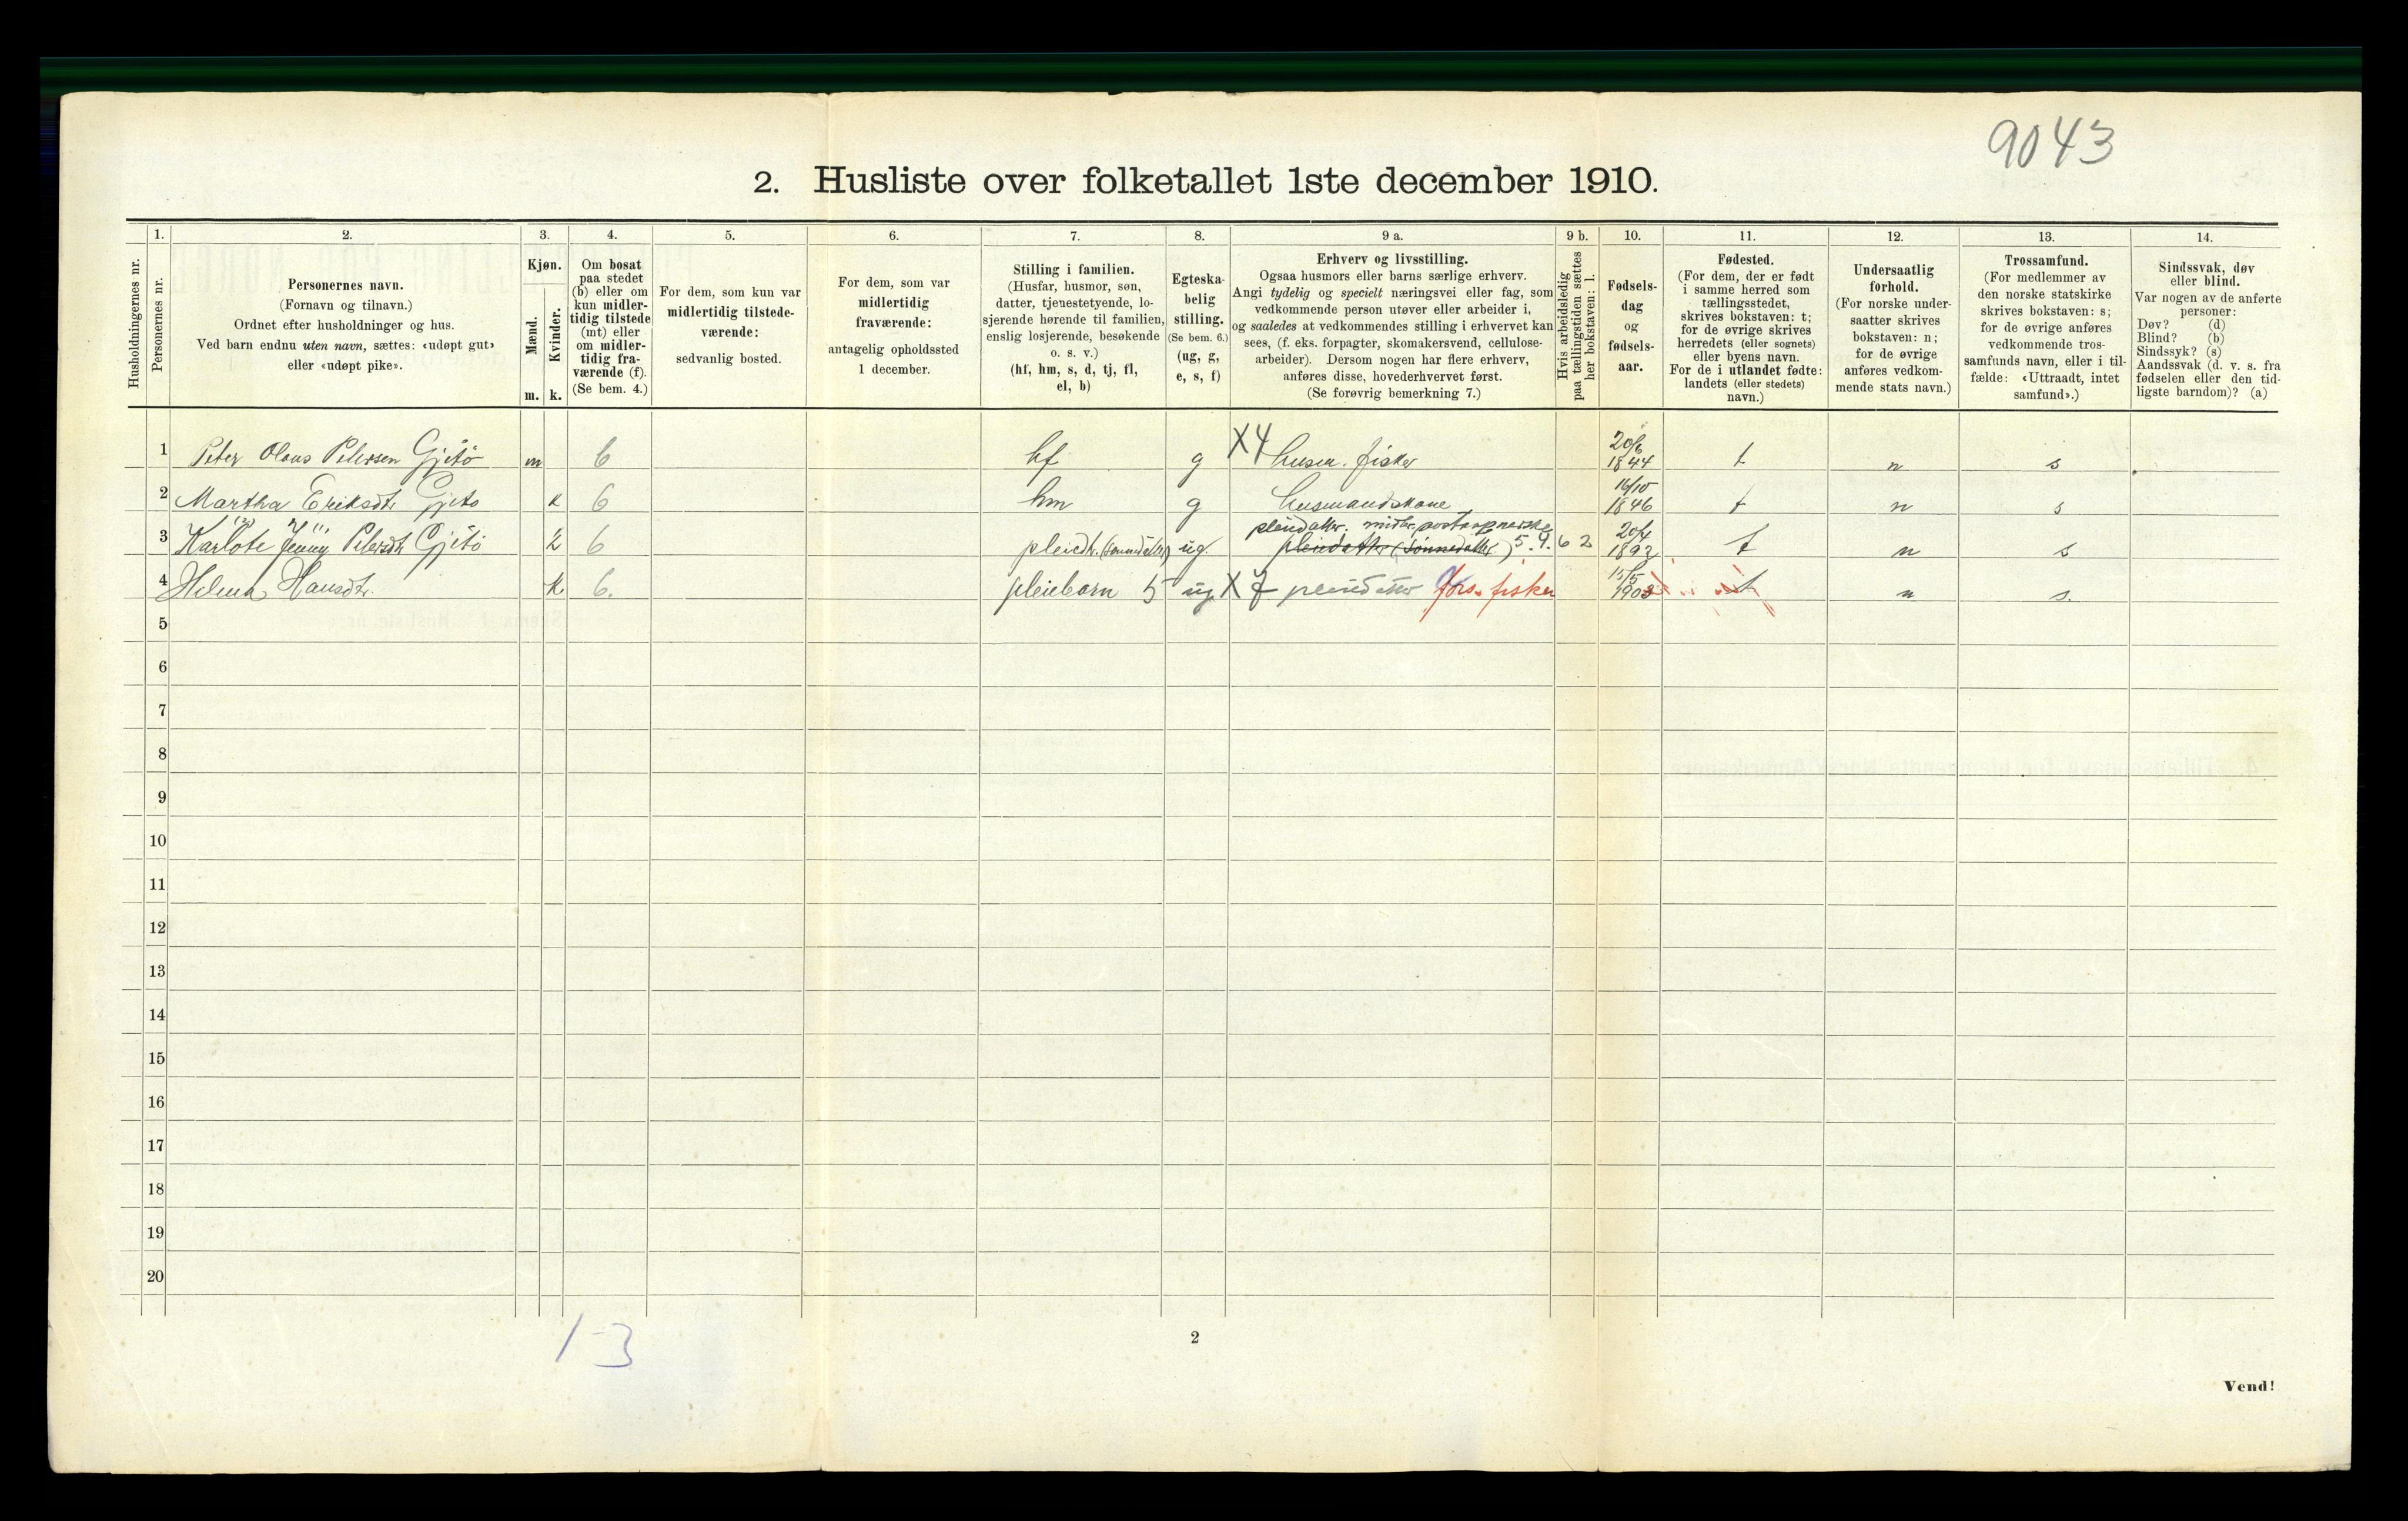 9043
2. Husliste over folketallet 1ste december 1910.
1. 2. 3. 4. 5. 6. 7. 8. 9 a. 9 b. 10. 11. 12. 13. 14.
Husholdningernes nr.
Personernes nr.
Personernes navn.
(Fornavn og tilnavn.)
Ordnet efter husholdninger og hus.
Ved barn endnu uten navn, sættes: «udøpt gut»
eller «udøpt pike».
Kjøn.
Mænd.
Kvinder.
m. k.
Om bosat
paa stedet
(b) eller om
kun midler-
tidig tilstede
(mt) eller
om midler-
tidig fra-
værende (f).
(Se bem. 4.)
For dem, som kun var
midlertidig tilstede-
værende:
sedvanlig bosted.
For dem, som var
midlertidig
fraværende:
antagelig opholdssted
1 december.
Stilling i familien.
(Husfar, husmor, søn,
datter, tjenestetyende, lo-
sjerende hørende til familien,
enslig losjerende, besøkende
o. s. v.)
(hf, hm, s, d, tj, fl,
el, b)
Egteska-
belig
stilling.
(Se bem. 6.)
(ug, g,
e, s, f)
Erhverv og livsstilling.
Ogsaa husmors eller barns særlige erhverv.
Angi tydelig og specielt næringsvei eller fag, som
vedkommende person utøver eller arbeider i,
og saaledes at vedkommendes stilling i erhvervet kan
sees, (f. eks. forpagter, skomakersvend, cellulose-
arbeider). Dersom nogen har flere erhverv,
anføres disse, hovederhvervet først.
(Se forøvrig bemerkning 7.)
Hvis arbeidsledig
paa tællingstiden sættes
her bokstaven: l.
Fødsels-
dag
og
fødsels-
aar.
Fødested.
(For dem, der er født
i samme herred som
tællingsstedet,
skrives bokstaven: t;
for de øvrige skrives
herredets (eller sognets)
eller byens navn.
For de i utlandet fødte:
landets (eller stedets)
navn.)
Undersaatlig
forhold.
(For norske under-
saatter skrives
bokstaven: n;
for de øvrige
anføres vedkom-
mende stats navn.)
Trossamfund.
(For medlemmer av
den norske statskirke
skrives bokstaven: s;
for de øvrige anføres
vedkommende tros-
samfunds navn, eller i til-
fælde: «Uttraadt, intet
samfund».)
Sindssvak, døv
eller blind.
Var nogen av de anførte
personer:
Døv? (d)
Blind? (b)
Sindssyk? (s)
Aandssvak (d. v. s. fra
fødselen eller den tid-
ligste barndom)? (a)
1 Peter Olaus Petersen Gjetö m b hf g X4 husm. fisker 20/6 1844 t n s
2 Martha Eriksdtr Gjetö k b hm g husmandskone 16/10 1846 t n s
pleiedatter. midler. postaapnerske
3 Karlote Jenny Petersdt Gjetö k b pleiedtr. (sønnedatter) ug. pleiedatter (sønnedatter) 5.9.62 20/4 1892 t n s
4 Helena Hansdtr. k b. pleiebarn 5 ug X 7 pleiedatter fors. fisker 15/5 1903 t n s.
5
6
7
8
9
10
11
12
13
14
15
16
17
18
19
20
1-3
2
Vend!